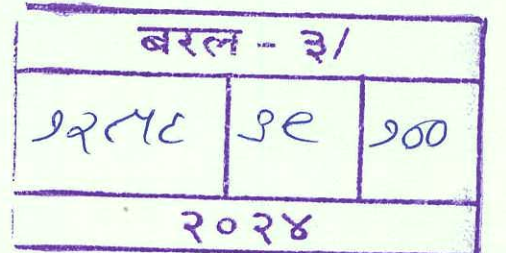 बरल - ३/
१२५८ ३९ १००
२०२४